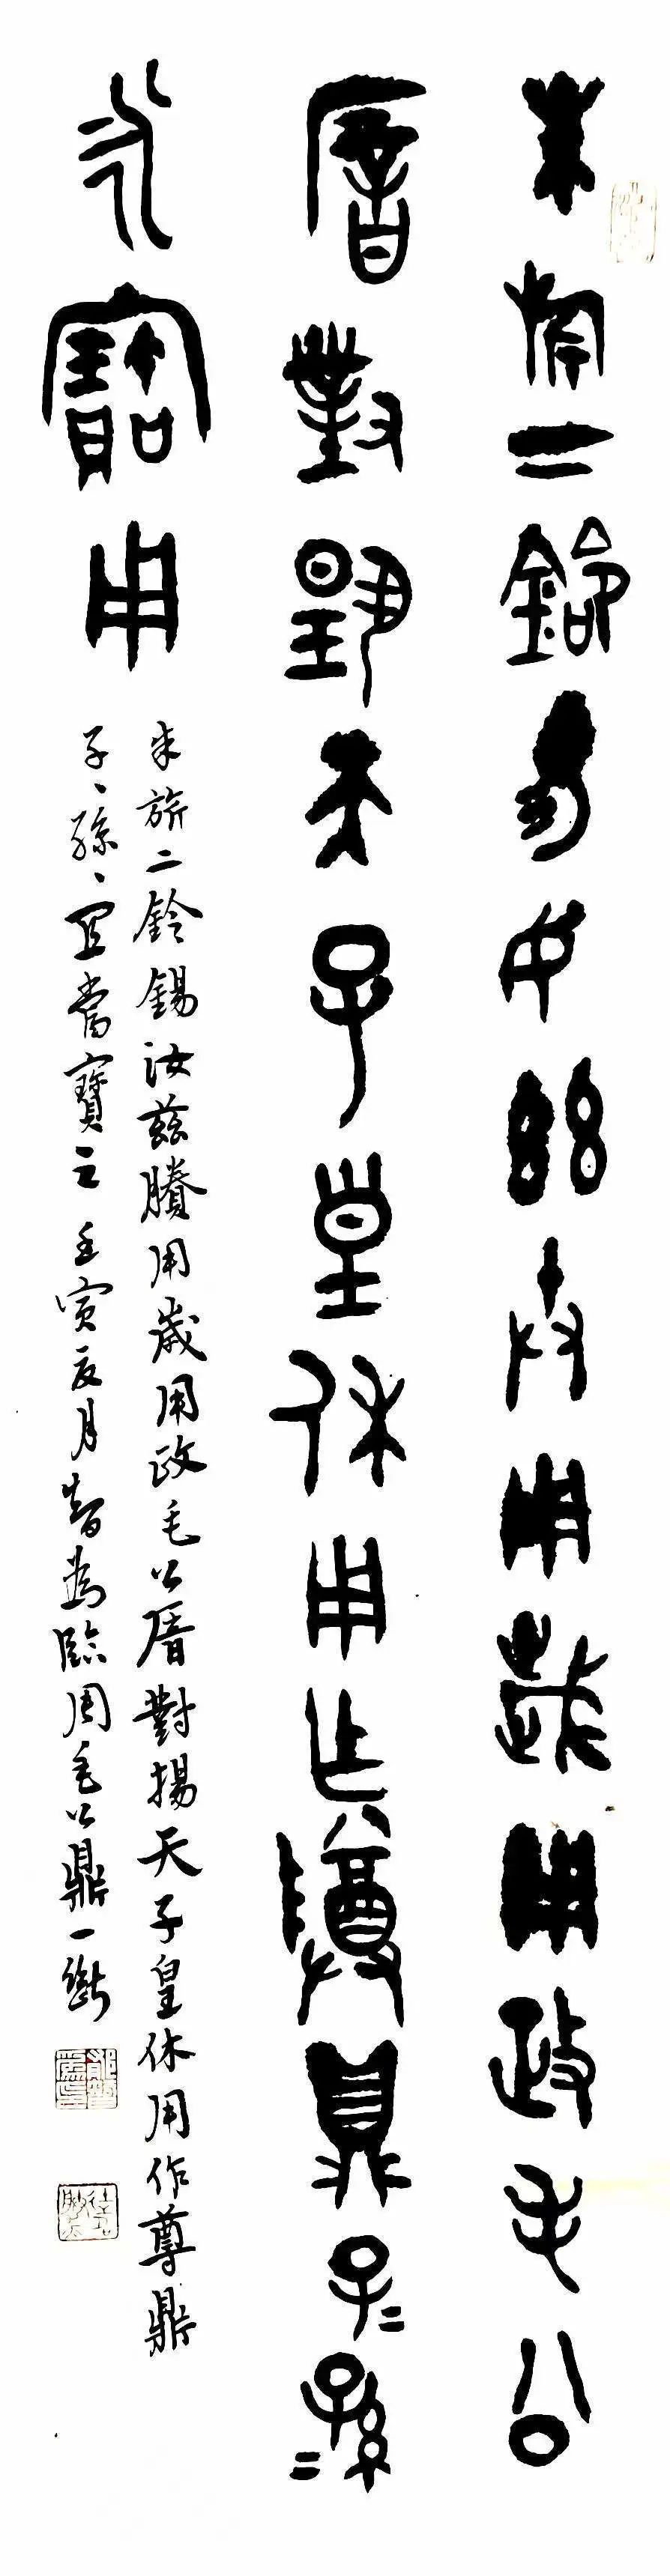 朱旂二鈴易女茲朕用歲用政毛公
厝對揚天子皇休用乍尊鼎子=孫=
永寶用
朱旂二鈴錫汝茲賸用歲用政毛公厝對揚天子皇休用作尊鼎
子、孫、宜當寶之 壬寅夏月智為臨周毛公鼎一斷